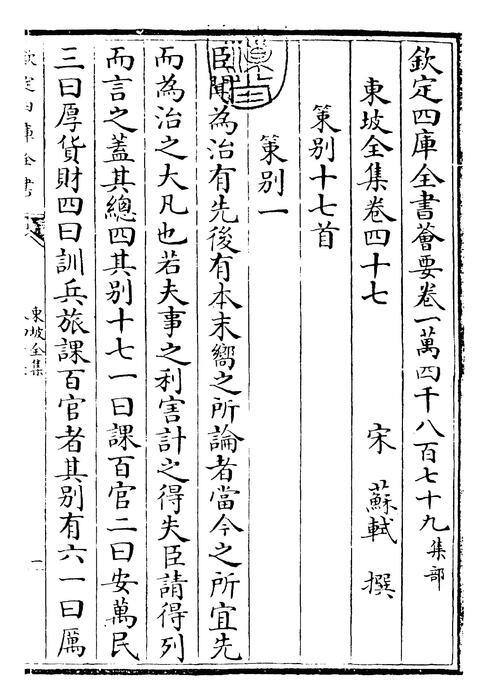 欽定四庫全書薈要卷一萬四千八百七十九集部
東坡全集卷四十七 宋 蘇軾 撰
策别十七首
策别一
臣聞為治有先後有本末嚮之所論者當今之所宜先
而為治之大凡也若夫事之利害計之得失臣請得列
而言之蓋其總四其别十七一曰課百官二曰安萬民
三曰厚貨財四曰訓兵旅課百官者其别有六一曰厲
欽定四庫全書
東坡全集
一